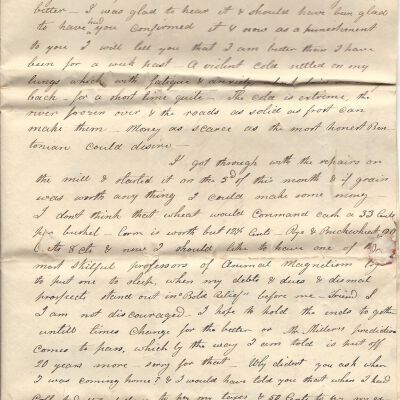 better – I was glad to hear it & should have been glad
to have had you confirmed it & now as a punishment
to you I will tell you that I am better than I have
been for a week past – A violent Cold settled on my
lungs which with fatigue & anxiety
back – for a short time quite – The cold is extreme, the
river frozen over & the roads as solid as frost can
make them – Money as scarce as the most honest Ben-
tonian could desire –
I got through with the repairs on
the mill & started it on the 3d of this month & if grain
was worth any thing I could make some money –
I don't think that wheat would Command cash a 33 Cents
per bushel – Corn is worth but 12½ Cents – Rye & Buckwheat
to 18 cts & now I should like to have one of
most skilful professors of Animal Magnetism
to put me to sleep, when my debts & dues & dismal
prospects stand out in "Bold Relief" before me – friend I
I am not discouraged – I hope to hold the ends together
untill times Change for the better or Mr Millers prediction
comes to pass, which by the way I am told is put off
20 years more – sorry for that – Why didn't you ask when
I was coming home? & I would have told you that when I had
my taxes & 50 Cents to